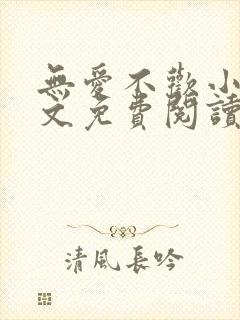 無愛不歡小
文免費閱讀
清風長吟